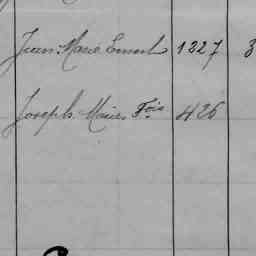 Jean Marie Ernest 1327 3
Joseph Marie Fois 426